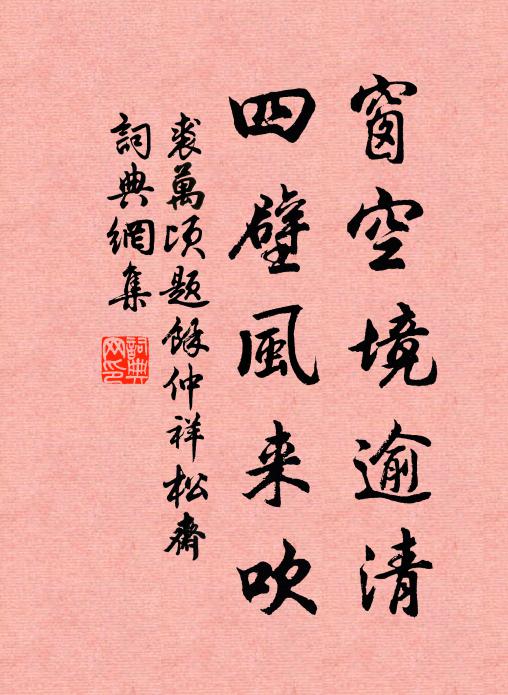 窗空境逾清
四壁風来吹
裘萬頃題餘仲祥松齋
詞典網集
詞典網印